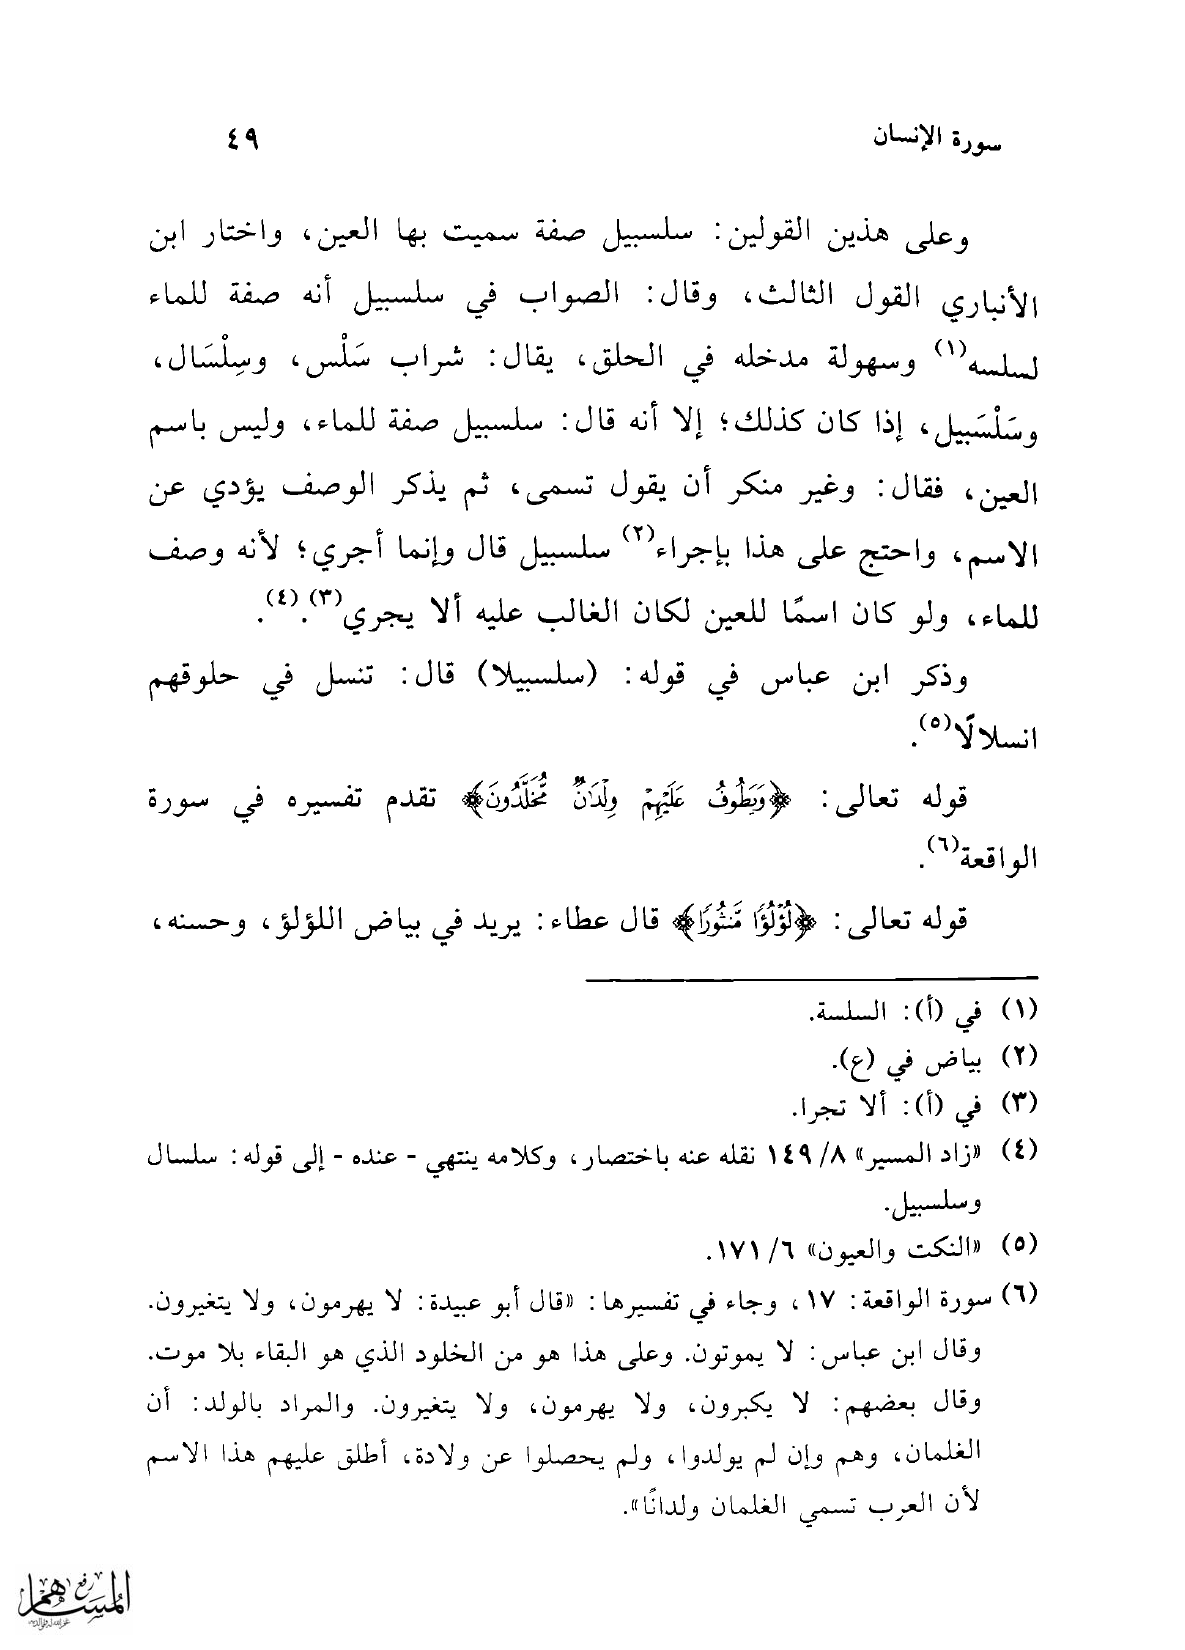 سورة الإنسان ٤٩
وعلى هذين القولين: سلسبيل صفة سميت بها العين، واختار ابن
الأنباري القول الثالث، وقال: الصواب في سلسبيل أنه صفة للماء
لسلسه(١) وسهولة مدخله في الحلق، يقال: شراب سَلْس، وسِلْسَال،
وسَلْسَبيل، إذا كان كذلك؛ إلا أنه قال: سلسبيل صفة للماء، وليس باسم
العين، فقال: وغير منكر أن يقول تسمى، ثم يذكر الوصف يؤدي عن
الاسم، واحتج على هذا بإجراء(٢) سلسبيل قال وإنما أجري؛ لأنه وصف
للماء، ولو كان اسمًا للعين لكان الغالب عليه ألا يجري(٣).(٤).
وذكر ابن عباس في قوله: (سلسبيلا) قال: تنسل في حلوقهم
انسلالًا(٥).
قوله تعالى: ﴿وَيَطُوفُ عَلَيْهِمْ وِلْدَانٌ مُّخَلَّدُونَ﴾ تقدم تفسيره في سورة
الواقعة(٦).
قوله تعالى: ﴿لُؤْلُؤًا مَّنثُورًا﴾ قال عطاء: يريد في بياض اللؤلؤ، وحسنه،
(١) في (أ): السلسة.
(٢) بياض في (ع).
(٣) في (أ): ألا تجرا.
(٤) «زاد المسير» ٨/ ١٤٩ نقله عنه باختصار، وكلامه ينتهي - عنده - إلى قوله: سلسال
وسلسبيل.
(٥) «النكت والعيون» ٦/ ١٧١.
(٦) سورة الواقعة: ١٧، وجاء في تفسيرها: «قال أبو عبيدة: لا يهرمون، ولا يتغيرون.
وقال ابن عباس: لا يموتون. وعلى هذا هو من الخلود الذي هو البقاء بلا موت.
وقال بعضهم: لا يكبرون، ولا يهرمون، ولا يتغيرون. والمراد بالولد: أن
الغلمان، وهم وإن لم يولدوا، ولم يحصلوا عن ولادة، أطلق عليهم هذا الاسم
لأن العرب تسمي الغلمان ولدانًا».